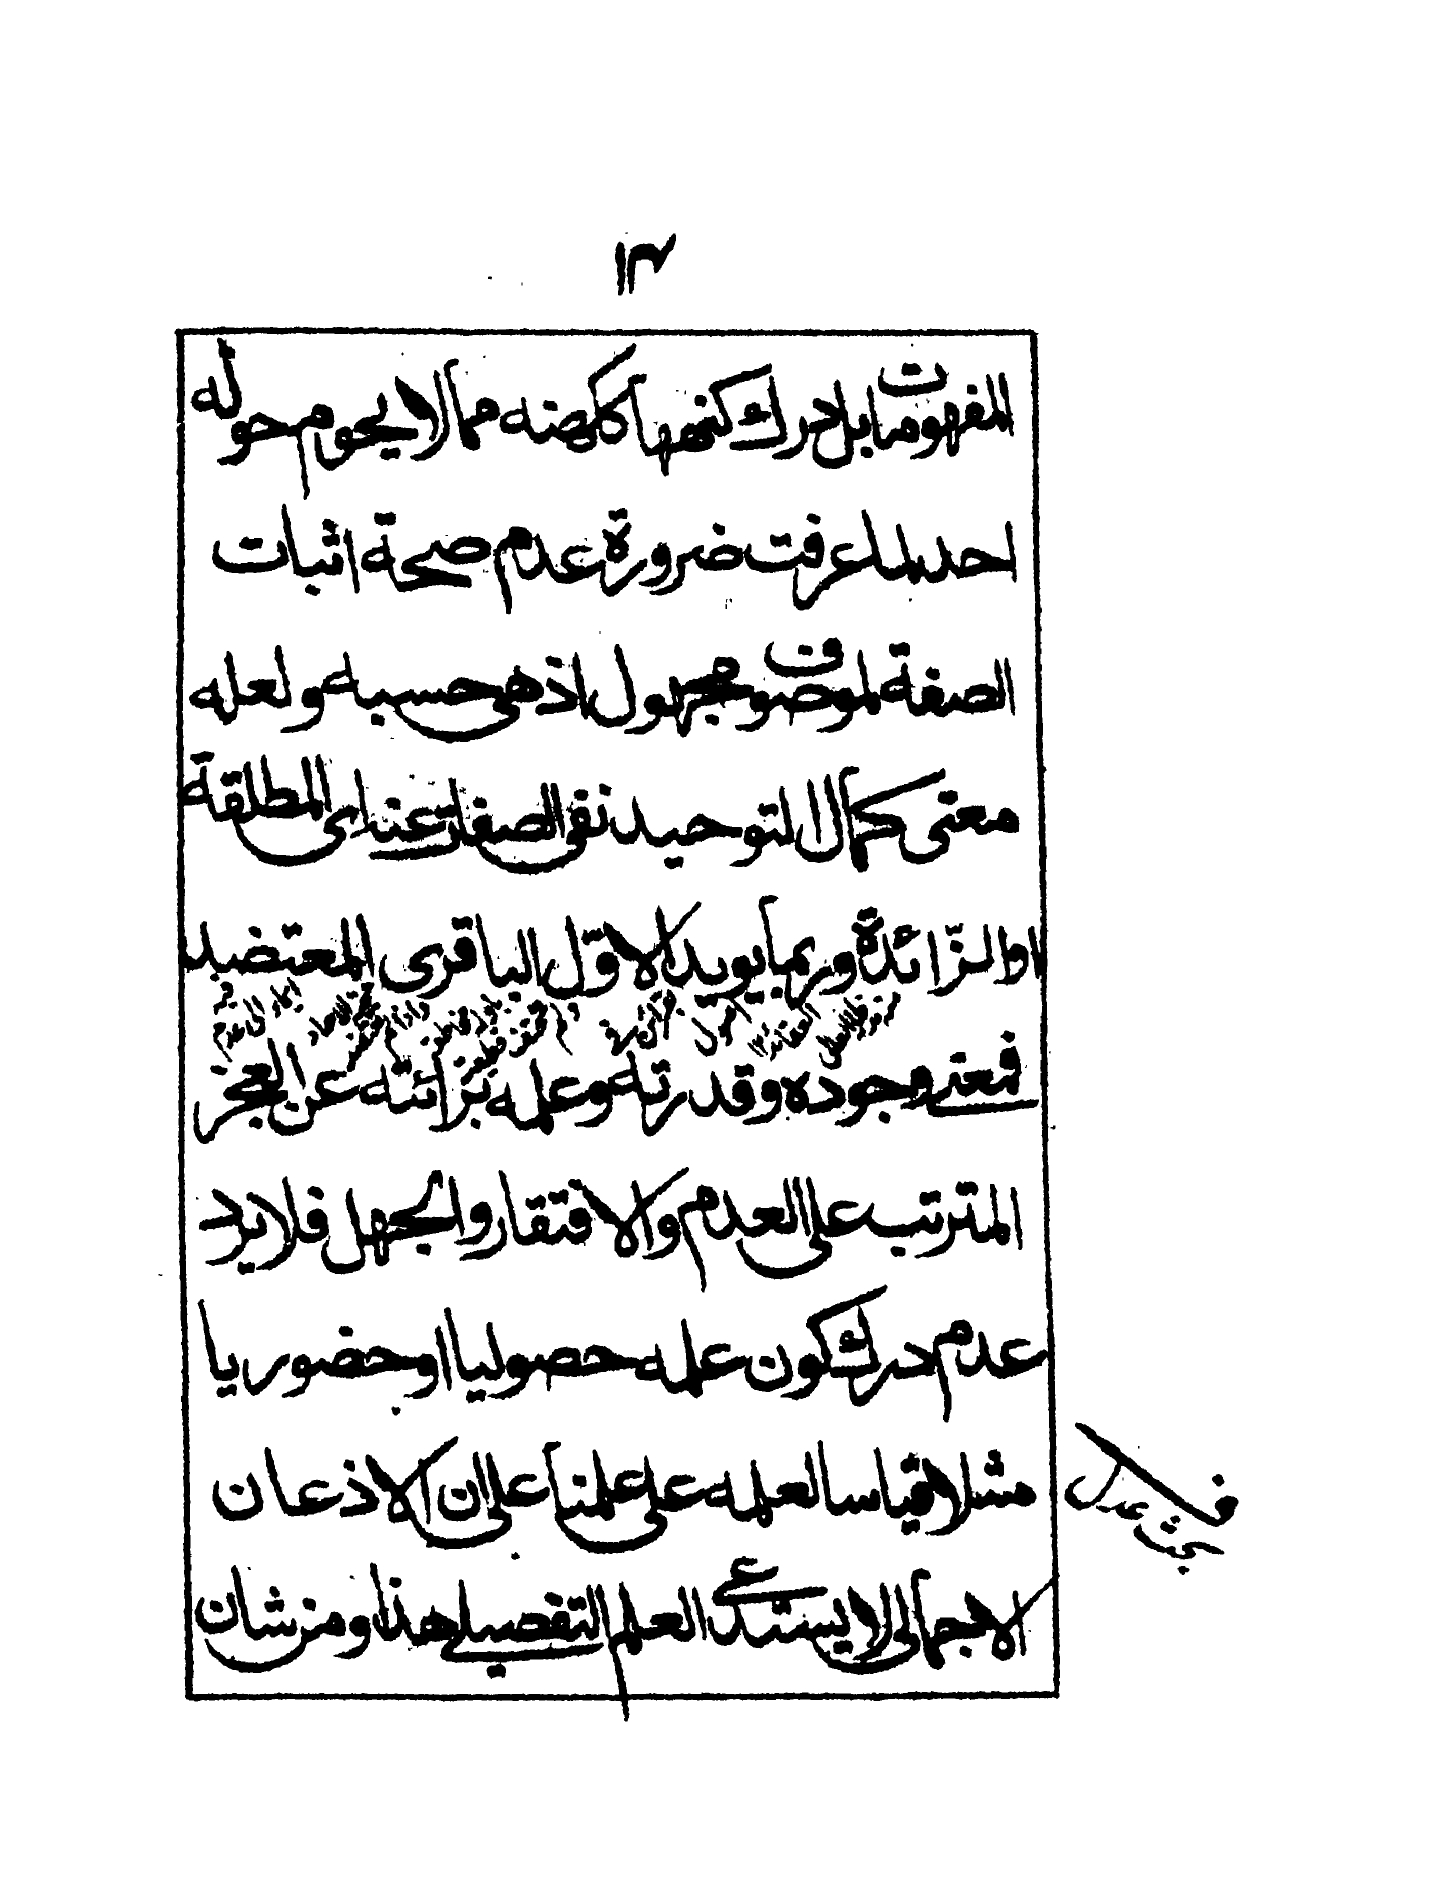 ١٣
المفهومات بل درك كنهها ككهنه مما لا يحوم حوله
احد بل عرفت ضرورة عدم صحة اثبات
الصفة لموصوف مجهول اذ هى حسبه ولعله
معنى كمال التوحيد نفى الصفات عنه اى المطلقة
او الزائدة وربما يويد الاول الباقرى المعتضد
فمعنى وجوده وقدرته وعلمه برائته عن العجز
المترتب على العدم والافتقار والجهل فلا يرد
عدم درك كون علمه حصوليا او حضوريا
مثلا قياسا لعلمه على علمنا على ان الاذعان
الاجمالى لا يستدعى العلم التفصيلى هذا ومن شان
ف
بحث عدل